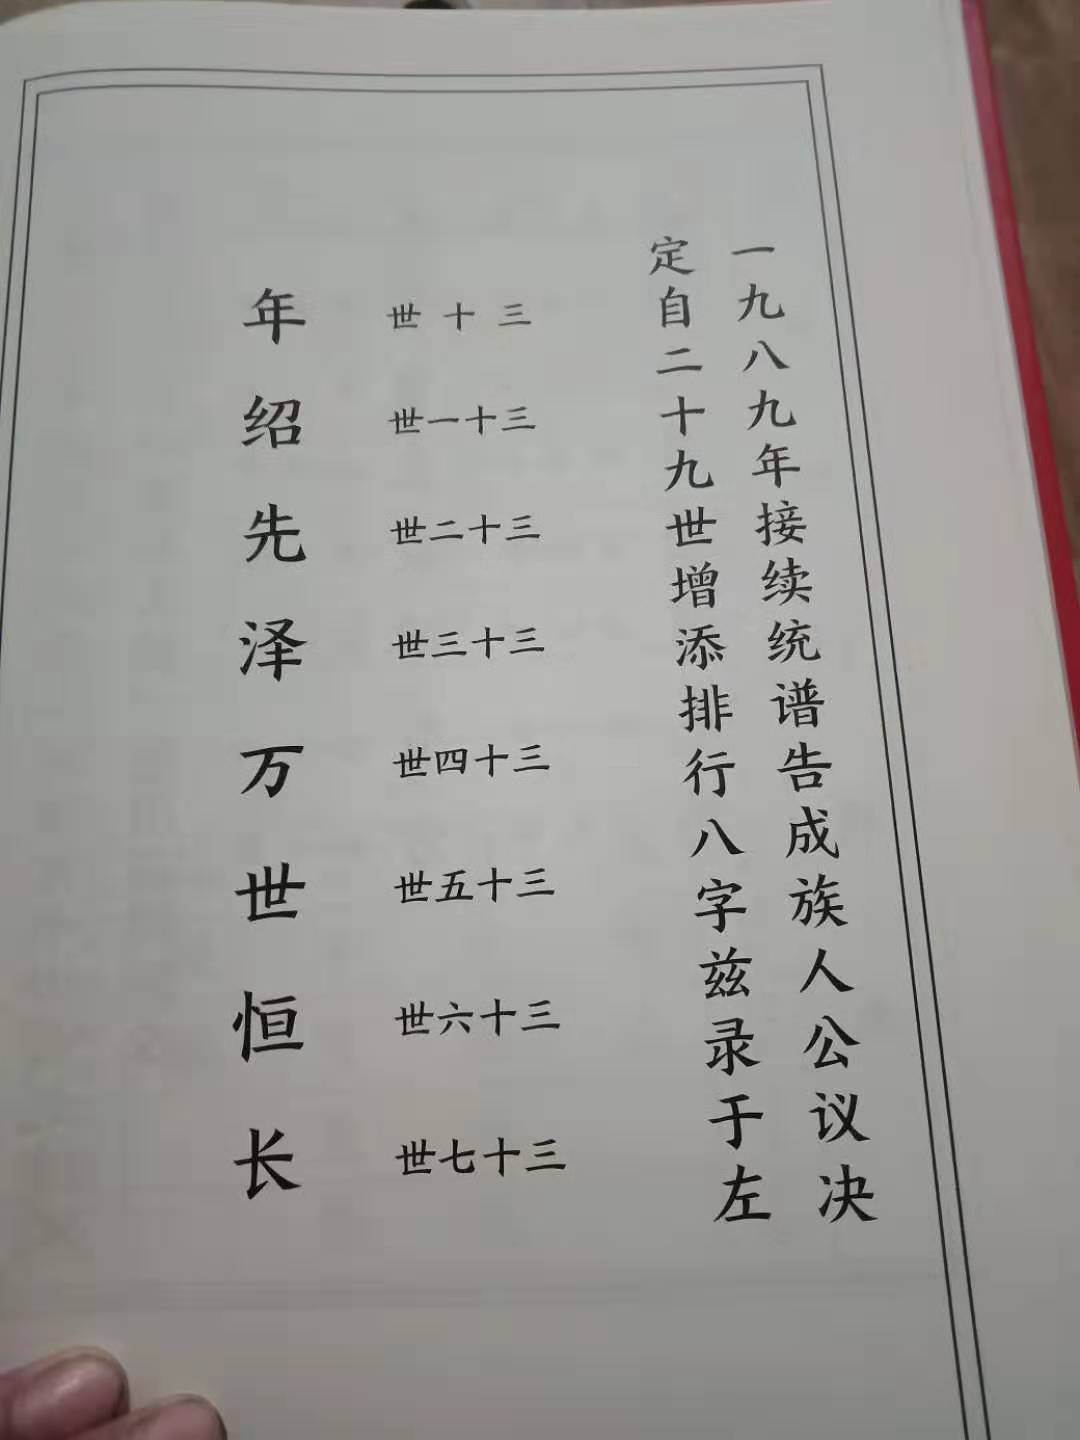 一九八九年接续统谱告成族人公议决
定自二十九世增添排行八字兹录于左
三十世 年
三十一世 绍
三十二世 先
三十三世 泽
三十四世 万
三十五世 世
三十六世 恒
三十七世 长